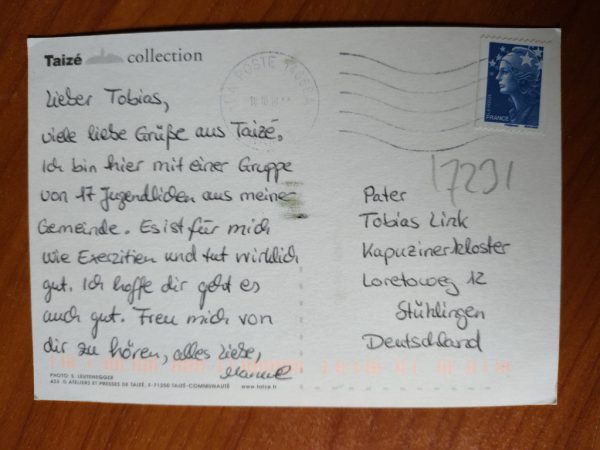 Taizé collection
LA POSTE
FRANCE
Lieber Tobias,
viele liebe Grüße aus Taizé.
Ich bin hier mit einer Gruppe
von 17 Jugendlichen aus meiner
Gemeinde. Es ist für mich
wie Exerzitien und tut wirklich
gut. Ich hoffe dir geht es
auch gut. Freu mich von
dir zu hören, alles Liebe,
17291
Pater
Tobias Link
Kapuzinerkloster
Loretoweg 12
Stühlingen
Deutschland
PHOTO: S. LEUTENEGGER
A55 © ATELIERS ET PRESSES DE TAIZÉ, F-71250 TAIZÉ-COMMUNAUTÉ www.taize.fr